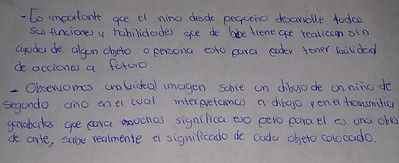 - Es importante que el niño desde pequeño desarrolle todas
sus funciones y habilidades que de bebe tiene que realizar sin
ayuda de algun objeto o persona esto para poder tener
de acciones a futuro.
- Observamos una imagen sobre un dibujo de un niño de
segundo año en el cual interpretamos el dibujo y en el transmitia
garabatos que para muchos significa eso pero para el es una obra
de arte, sabe realmente el significado de cada objeto colocado.